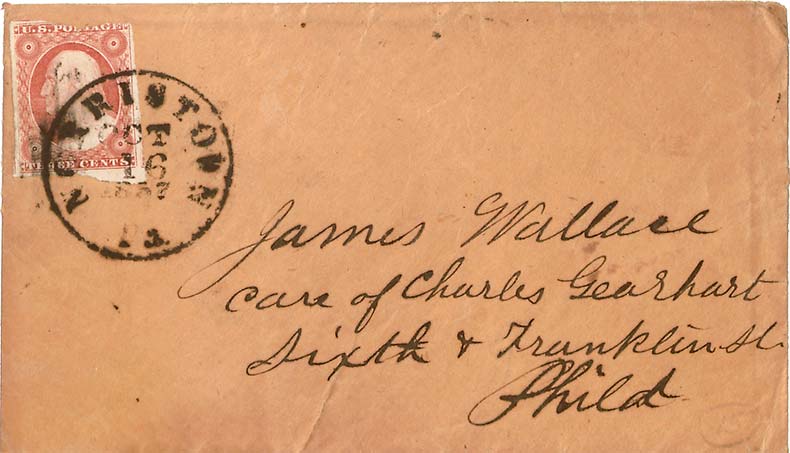 U.S. POSTAGE
THREE CENTS
NORRISTOWN
OCT
16
1857
Pa.
James Wallace
care of Charles Gearhart
Sixth & Franklin St.
Philad